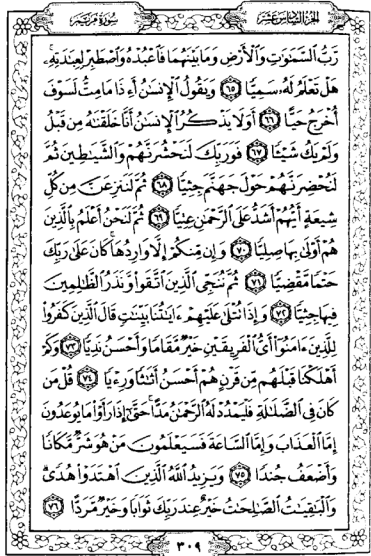 الجزء السادس عشر
سورة مريم
رَّبُّ ٱلسَّمَٰوَٰتِ وَٱلْأَرْضِ وَمَا بَيْنَهُمَا فَٱعْبُدْهُ وَٱصْطَبِرْ لِعِبَٰدَتِهِۦ
هَلْ تَعْلَمُ لَهُۥ سَمِيًّا ٦٥ وَيَقُولُ ٱلْإِنسَٰنُ أَءِذَا مَا مِتُّ لَسَوْفَ
أُخْرَجُ حَيًّا ٦٦ أَوَلَا يَذْكُرُ ٱلْإِنسَٰنُ أَنَّا خَلَقْنَٰهُ مِن قَبْلُ
وَلَمْ يَكُ شَيْـًٔا ٦٧ فَوَرَبِّكَ لَنَحْشُرَنَّهُمْ وَٱلشَّيَٰطِينَ ثُمَّ
لَنُحْضِرَنَّهُمْ حَوْلَ جَهَنَّمَ جِثِيًّا ٦٨ ثُمَّ لَنَنزِعَنَّ مِن كُلِّ
شِيعَةٍ أَيُّهُمْ أَشَدُّ عَلَى ٱلرَّحْمَٰنِ عِتِيًّا ٦٩ ثُمَّ لَنَحْنُ أَعْلَمُ بِٱلَّذِينَ
هُمْ أَوْلَىٰ بِهَا صِلِيًّا ٧٠ وَإِن مِّنكُمْ إِلَّا وَارِدُهَا كَانَ عَلَىٰ رَبِّكَ
حَتْمًا مَّقْضِيًّا ٧١ ثُمَّ نُنَجِّى ٱلَّذِينَ ٱتَّقَوا۟ وَّنَذَرُ ٱلظَّٰلِمِينَ
فِيهَا جِثِيًّا ٧٢ وَإِذَا تُتْلَىٰ عَلَيْهِمْ ءَايَٰتُنَا بَيِّنَٰتٍ قَالَ ٱلَّذِينَ كَفَرُوا۟
لِلَّذِينَ ءَامَنُوٓا۟ أَىُّ ٱلْفَرِيقَيْنِ خَيْرٌ مَّقَامًا وَأَحْسَنُ نَدِيًّا ٧٣ وَكَمْ
أَهْلَكْنَا قَبْلَهُم مِّن قَرْنٍ هُمْ أَحْسَنُ أَثَٰثًا وَرِءْيًا ٧٤ قُلْ مَن
كَانَ فِى ٱلضَّلَٰلَةِ فَلْيَمْدُدْ لَهُ ٱلرَّحْمَٰنُ مَدًّا حَتَّىٰٓ إِذَا رَأَوْا۟ مَا يُوعَدُونَ
إِمَّا ٱلْعَذَابَ وَإِمَّا ٱلسَّاعَةَ فَسَيَعْلَمُونَ مَنْ هُوَ شَرٌّ مَّكَانًا
وَأَضْعَفُ جُندًا ٧٥ وَيَزِيدُ ٱللَّهُ ٱلَّذِينَ ٱهْتَدَوْا۟ هُدًى
وَٱلْبَٰقِيَٰتُ ٱلصَّٰلِحَٰتُ خَيْرٌ عِندَ رَبِّكَ ثَوَابًا وَخَيْرٌ مَّرَدًّا ٧٦
٣٠٩